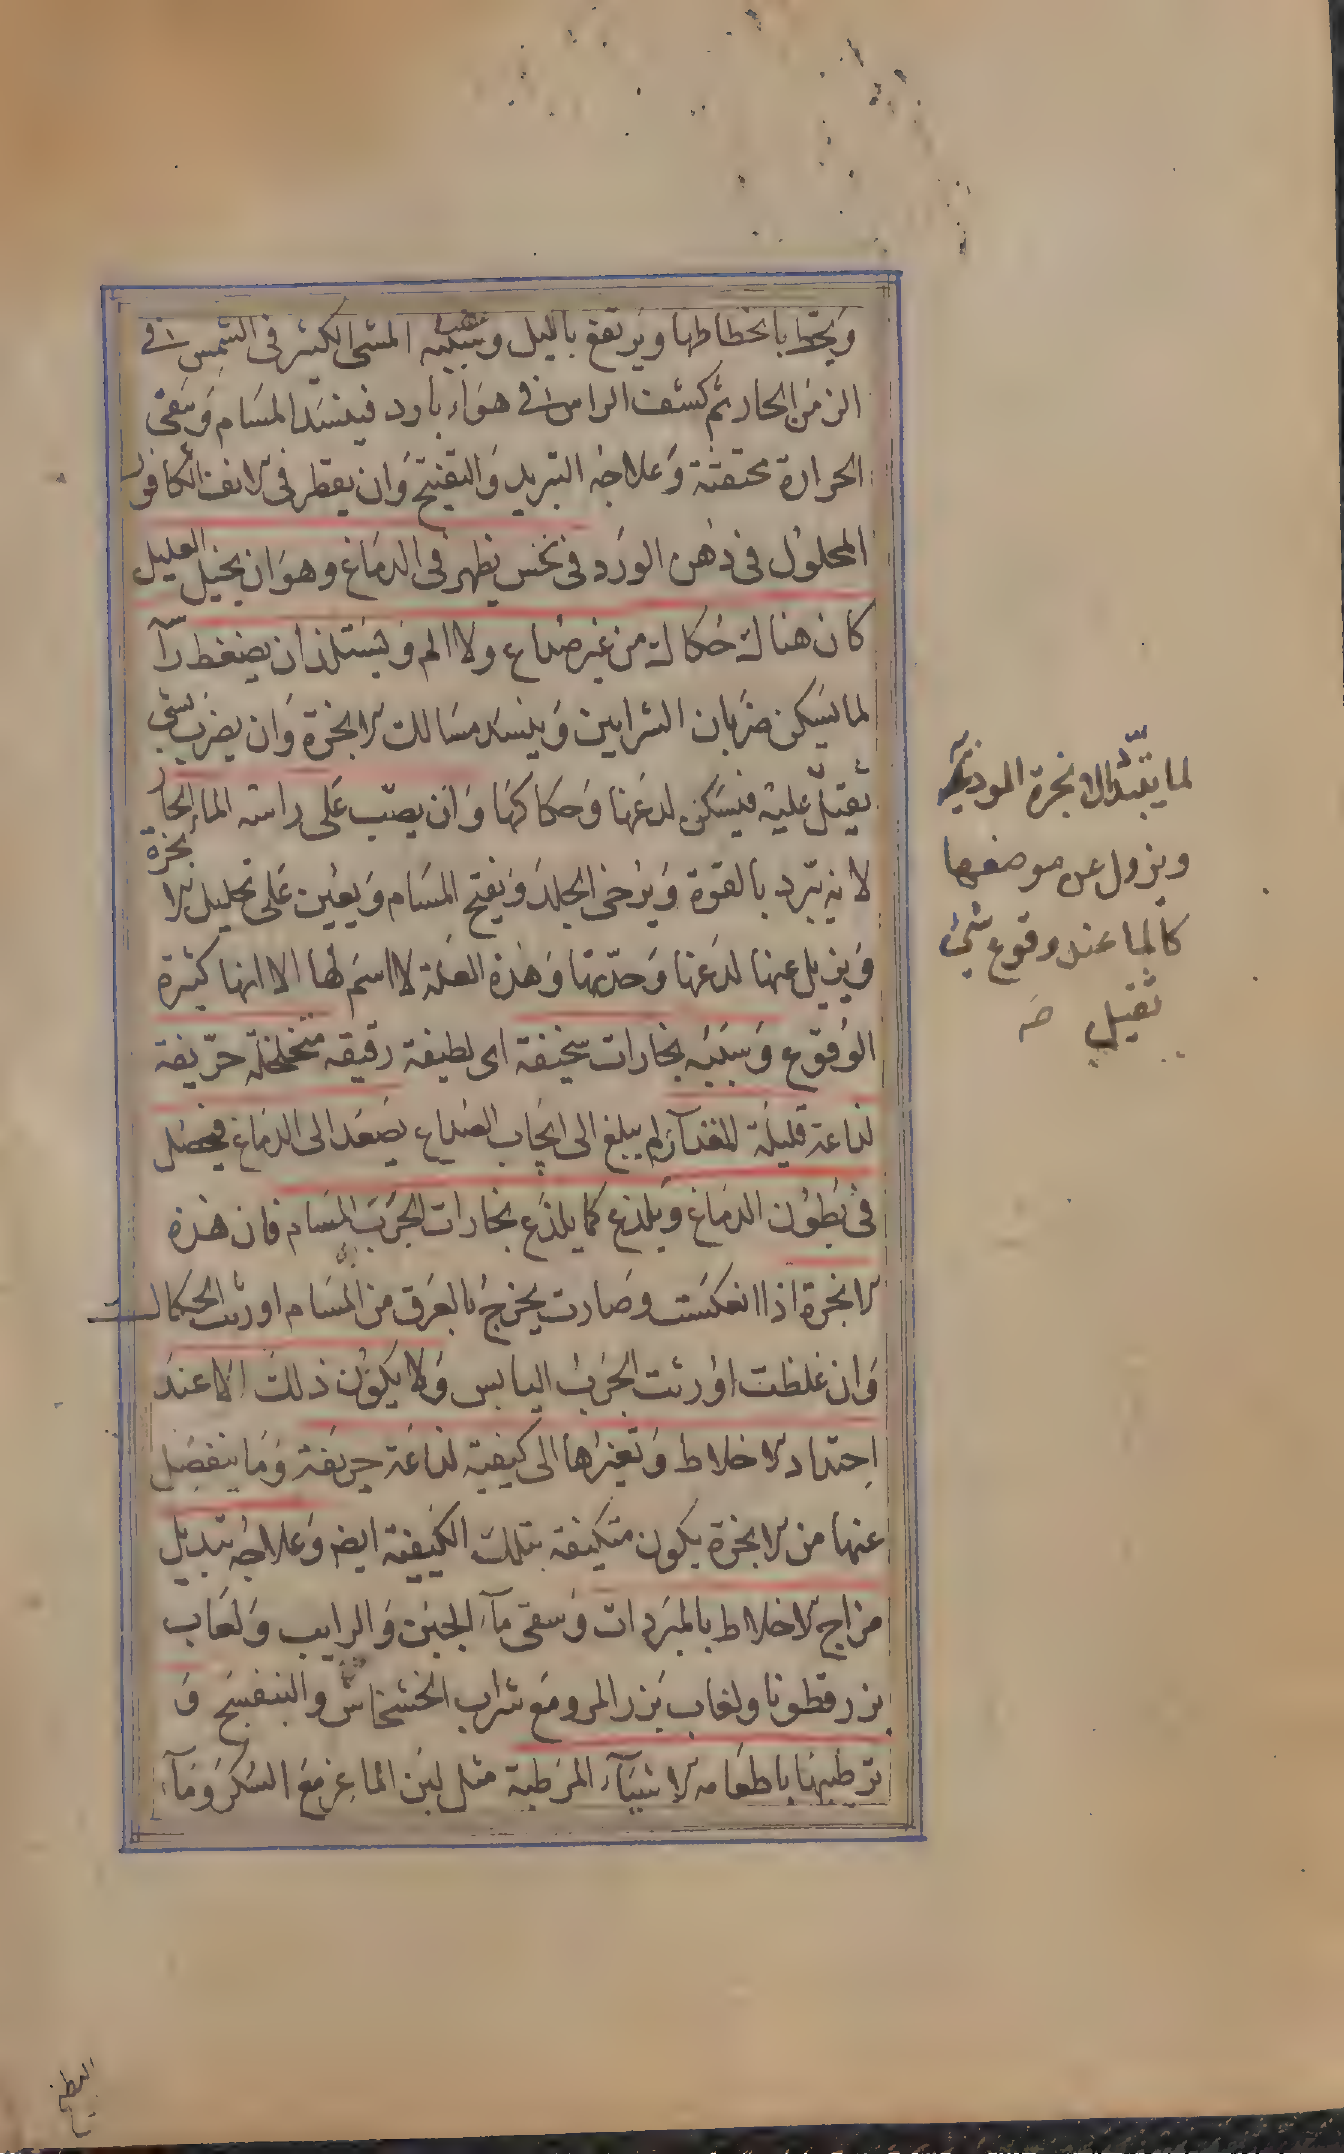 وينحط بانحطاطها ويرتفع بالليل وسببه المشى الكثير فى الشمس فى
الزمن الحار ثم كشف الراس فى هواء بارد فينسد المسام وتبقى
الحرارة محتقنة وعلاجه التبريد والتفتيح وان يقطر فى الانف الكافور
المحلول فى دهن الورد فى نخس يظهر فى الدماغ وهو ان يخيل العليل
كان هناك حكاكة من غير صداع ولا الم ويستلذ ان يضغط راسه
لما يسكن ضربان الشرايين وينسد مسالك الابخرة وان يضرب بشئ
ثقيل عليه فيسكن لدغها وحكاكها وان يصب على راسه الماء الحار
لانه يبرد بالقوة ويرخى الجلد ويفتح المسام ويعين على تحليل الابخرة
ويزيل عنها لدغها وحدتها وهذه العلة لا اسم لها الا انها كثيرة
الوقوع وسببه بخارات سخيفة اى لطيفة رقيقه متخلخلة حريفة
لذاعة قليلة المقدار لم يبلغ الى ايجاب الصداع يصعد الى الدماغ فيحصل
فى بطون الدماغ ويلذع كما يلذع بخارات الجرب المسام فان هذه
الابخرة اذا انعكست وصارت يخرج بالعرق من المسام اورثت الحكاك
وان غلظت اورثت الجرب اليابس ولا يكون ذلك الا عند
احتداد الاخلاط وتغيرها الى كيفية لذاعة حريفة وما ينفصل
عنها من الابخرة يكون متكيفة بتلك الكيفية ايضه وعلاجه تبديل
مزاج الاخلاط بالمبردات وسقى مآء الجبن والرايب ولعاب
بزر قطونا ولعاب بزر المرو مع شراب الخشخاش والبنفسج و
ترطيبها باطعامه الاشيآء المرطبة مثل لبن الماعز مع السكر ومآء
لما يتبدد الابخرة الموذية
ويزول عن موضعها
كالما عند وقوع شئ
ثقيل صه
البطيخ